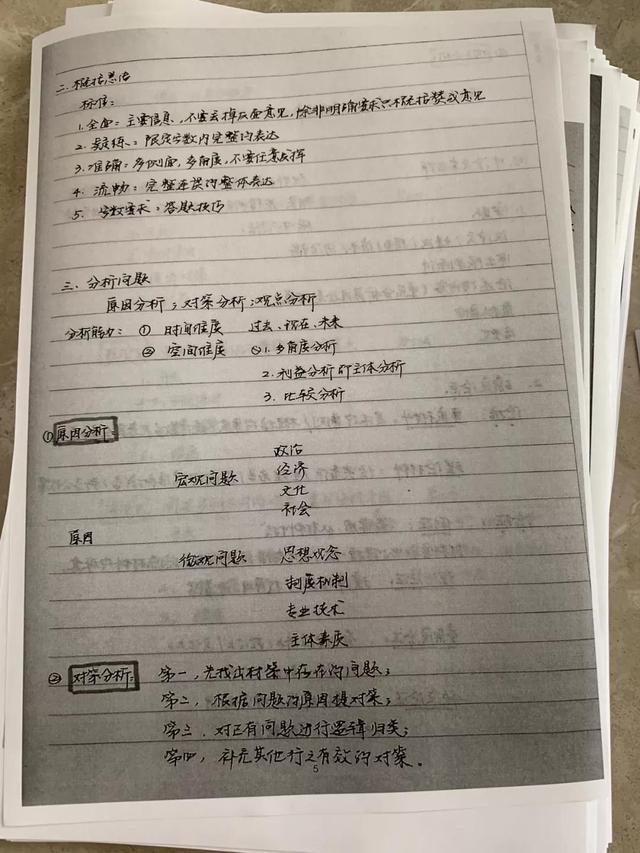 二. 概括总结
标准：
1. 全面：主要信息，不要去掉反面意见，除非明确要求只概括赞成意见
2. 凝练：限定字数内完整的表达
3. 准确：多侧面，多角度，不要任意发挥
4. 流畅：完整连贯的整体表达
5. 字数要求：答题技巧
三. 分析问题
原因分析；对策分析；观点分析
分析能力： ① 时间维度 过去、现在、未来
② 空间维度 1. 多角度分析
2. 利益分析即主体分析
3. 比较分析
① 原因分析：
政治
宏观问题 经济
文化
社会
原因
微观问题 思想观念
制度机制
专业技术
主体素质
② 对策分析： 第一，先找出材料中存在的问题；
第二，根据问题的原因提对策；
第三，对已有问题进行逻辑归类；
第四，补充其他行之有效的对策。
5